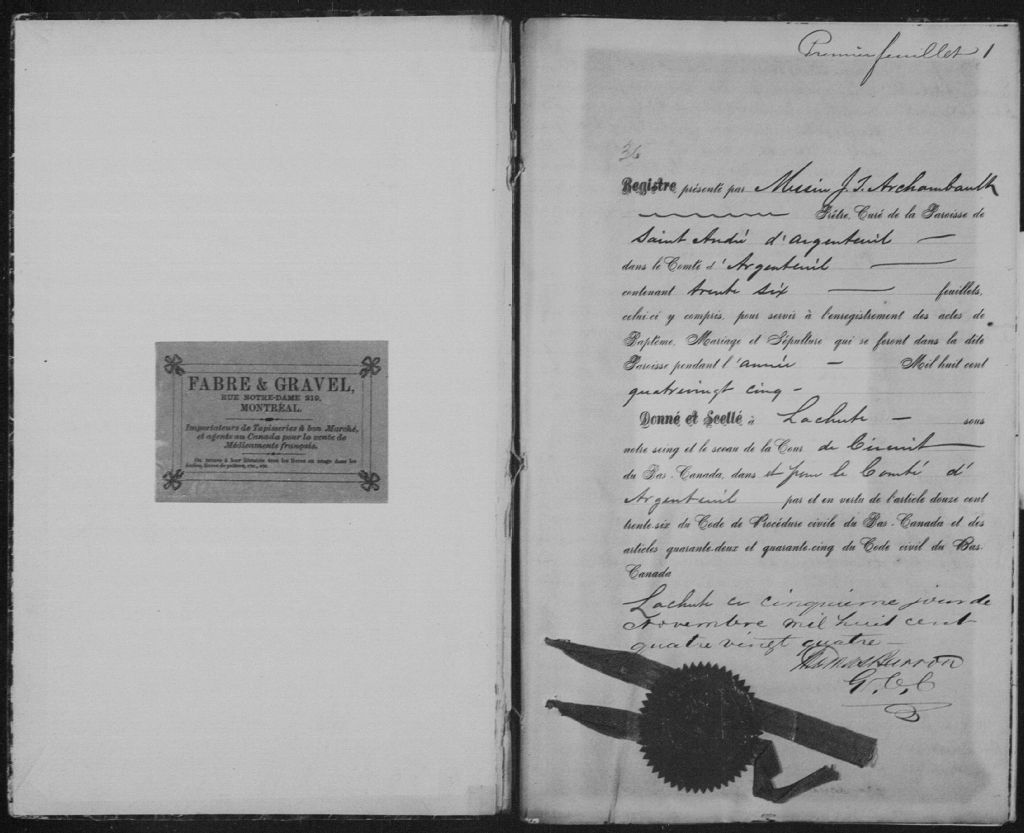 FABRE & GRAVEL,
RUE NOTRE-DAME 219,
MONTRÉAL.
Importateurs de Tapisseries à bon Marché,
et agents au Canada pour la vente de
Médicaments français.
On trouve à leur librairie tous les livres en usage dans les
écoles, livres de prières, etc., etc.
Premier feuillet 1
36
Registre présenté par Messire J. T. Archambault
Prêtre, Curé de la Paroisse de
Saint André d'Argenteuil
dans le Comté d'Argenteuil
contenant trente six feuillets,
celui-ci y compris, pour servir à l'enregistrement des actes de
Baptême, Mariage et Sépulture qui se feront dans la dite
Paroisse pendant l'année Mil huit cent
quatrevingt cinq -
Donné et Scellé à Lachute sous
notre seing et le sceau de la Cour de Circuit
du Bas-Canada, dans et pour le Comté d'
Argenteuil par et en vertu de l'article douze cent
trente-six du Code de Procédure civile du Bas-Canada et des
articles quarante-deux et quarante-cinq du Code civil du Bas-
Canada
Lachute ce cinquieme jour de
Novembre mil huit cent
quatre vingt quatre -
Thomas Barron
G. C. C.